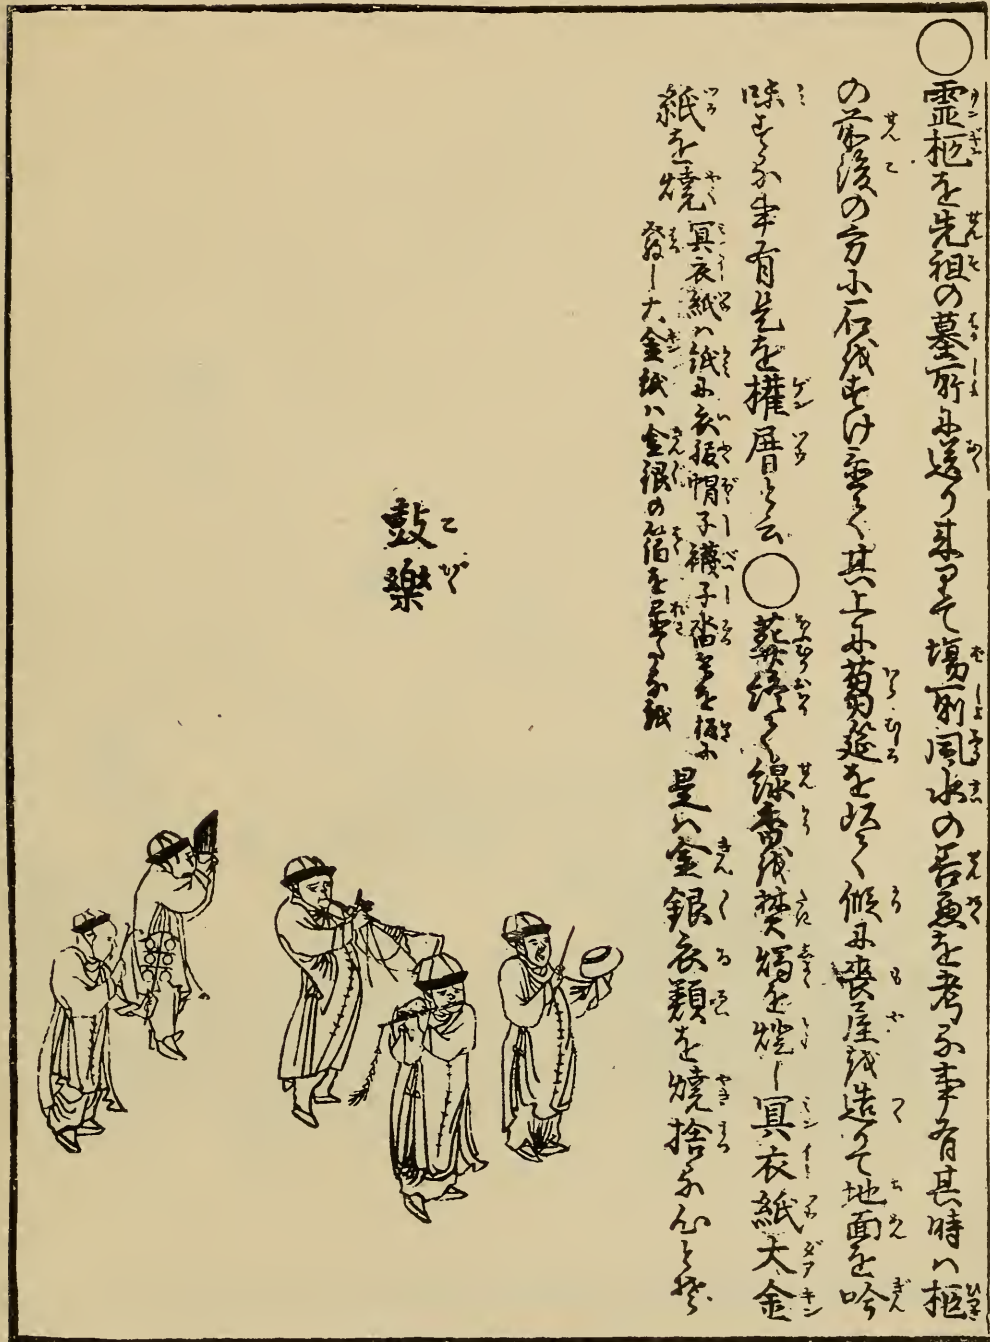 ○靈柩を先祖の墓所に送り来りて塲所風水の善悪を考る事有其時ハ柩
の前後の方に石をすけ置て其上に菊莚を敷て傾に喪屋を造りて地面を吟
味する事有是を權厝と云○葬終て線香を焚燭を燈し冥衣紙大金
紙を燒
冥衣紙ハ紙に衣服帽子襪子沓等を板に
發し大金紙ハ金銀の箔を置たる紙
是ハ金銀衣類を燒捨る心と云
鼓樂